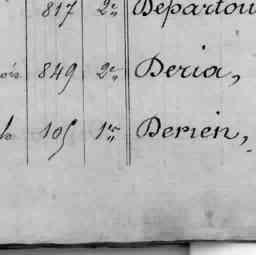 817 2e Departou
849 2e Deria,
105 1er Derien,